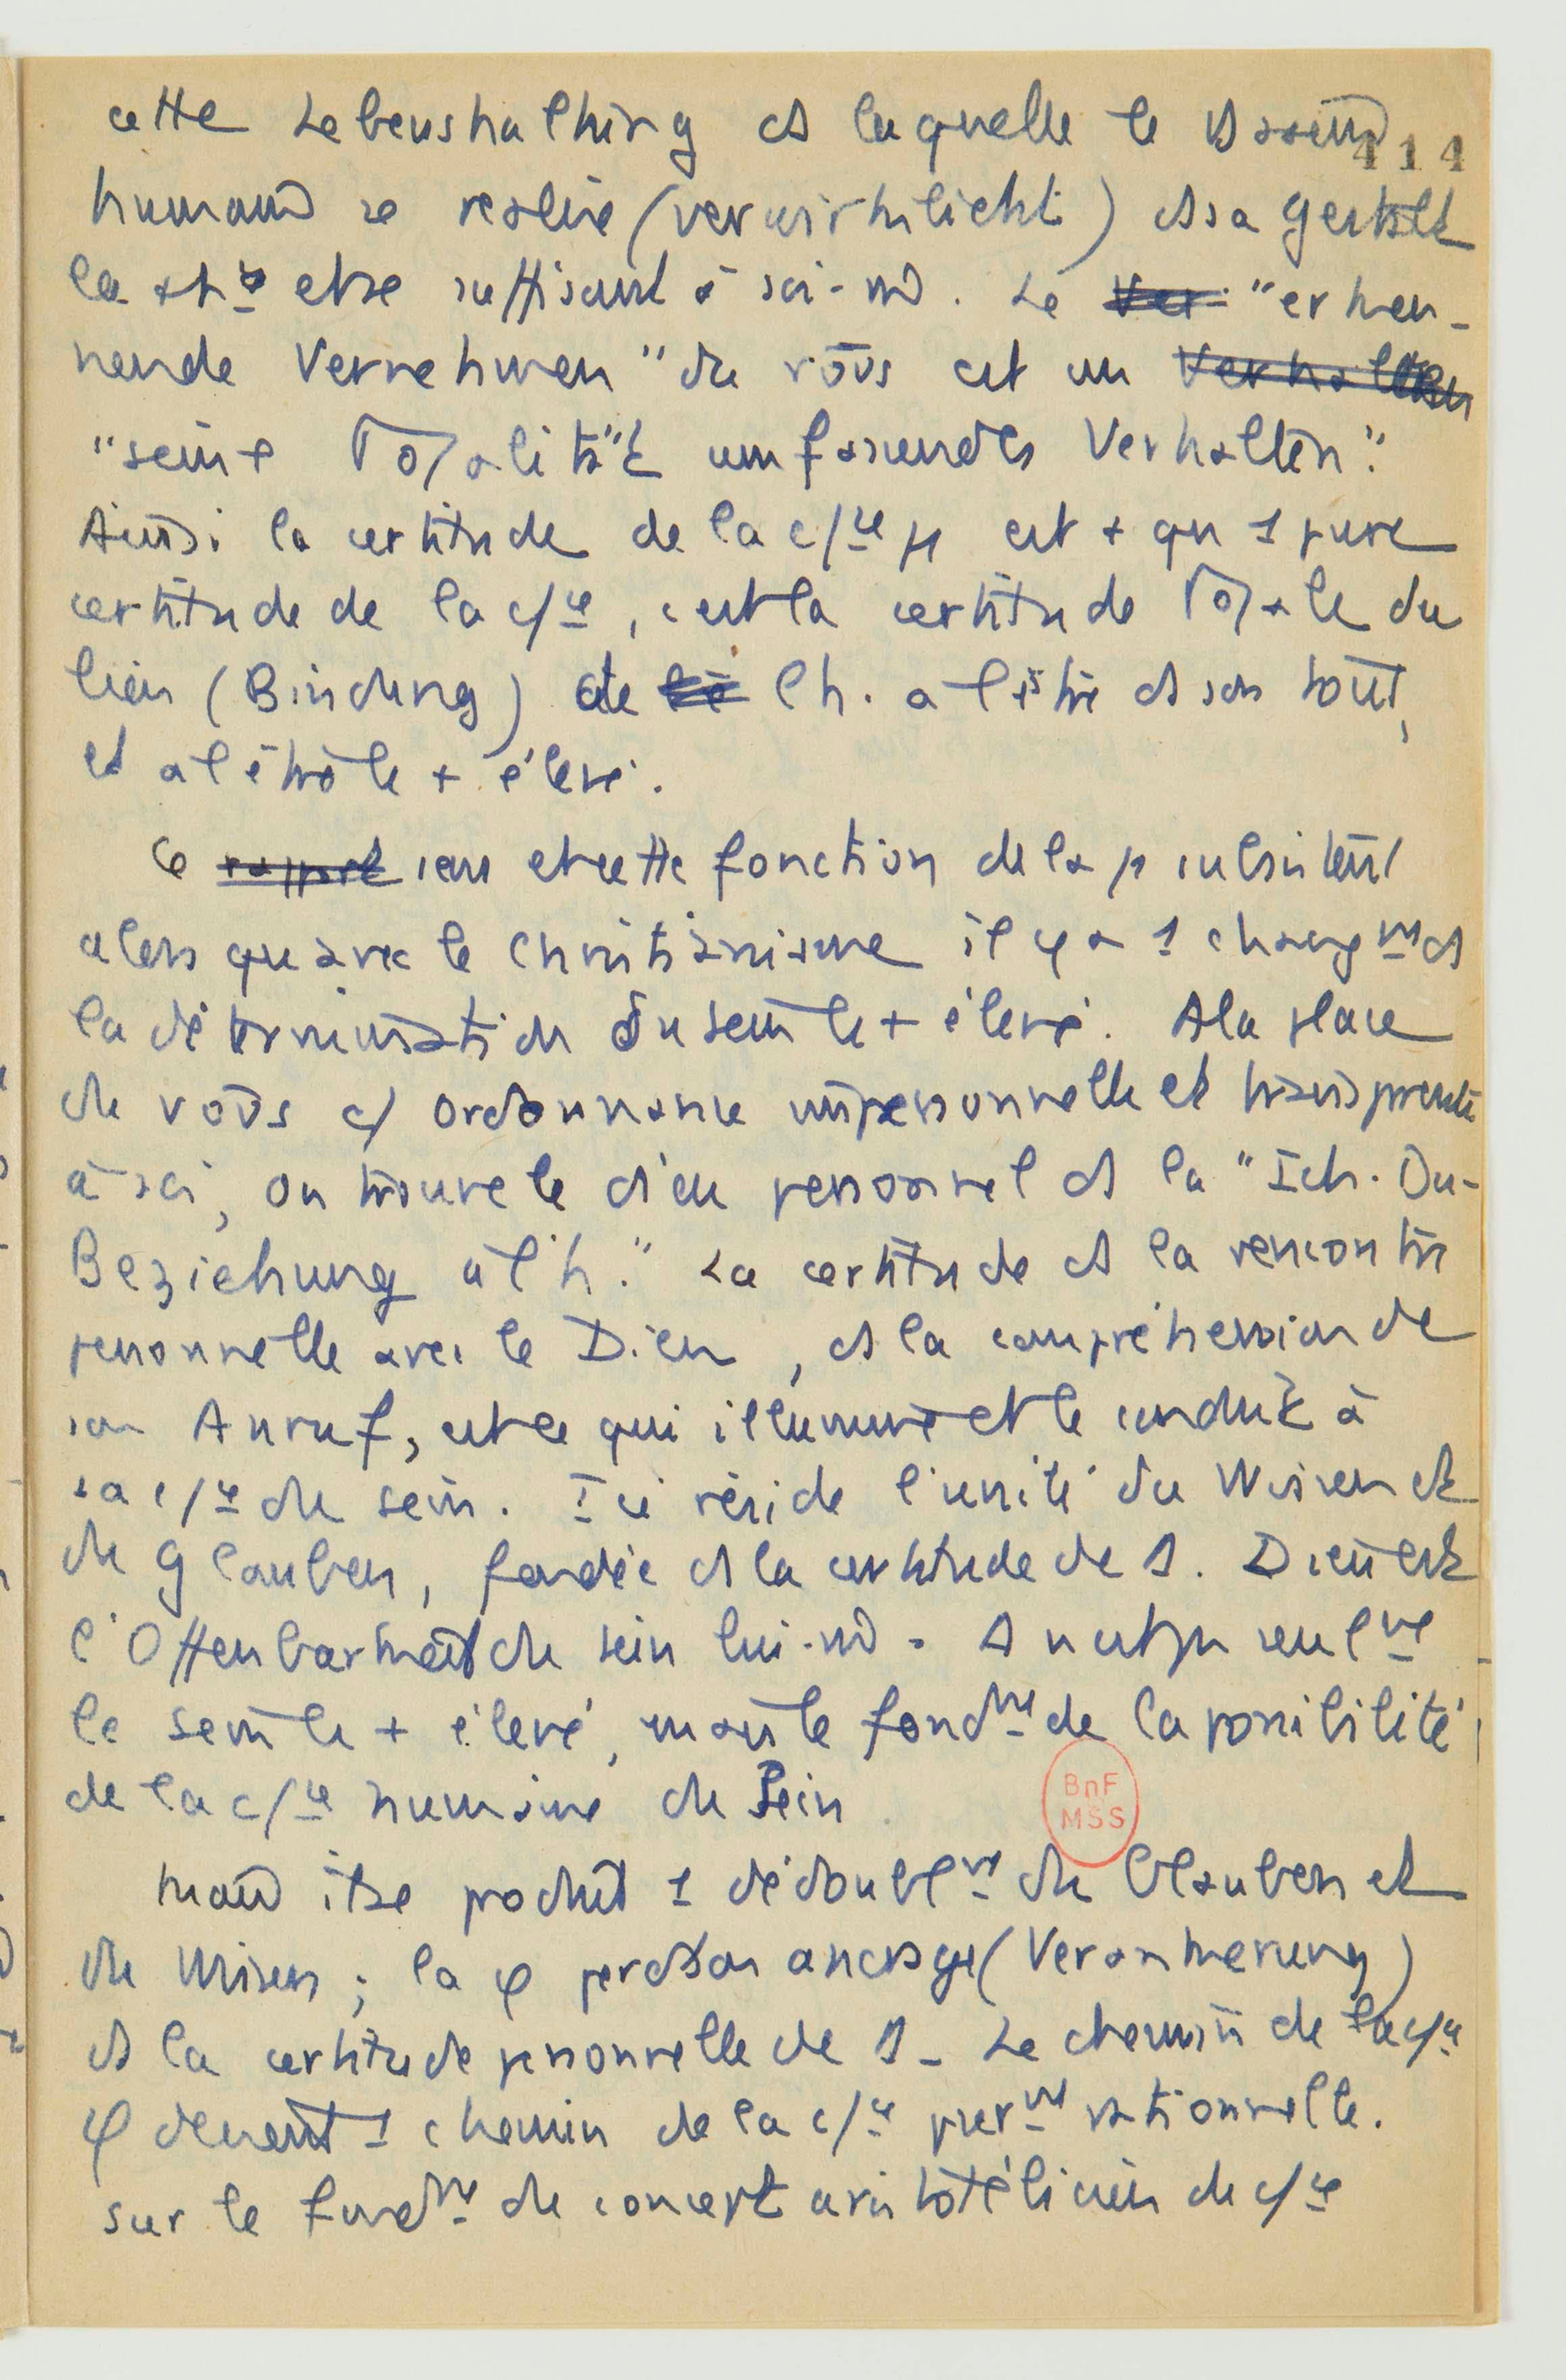 cette Lebenshaltung ds laquelle le Dasein 414
humain se réalise (verwirklicht) ds sa Gestalt
la + h^te et se suffisant à soi-m̂. Le Ver "erken-
nende Vernehmen" du νοῦς est un Verhalten
"seine Totalität umfassendes Verhalten".
Ainsi la certitude de la c/ce φ est + qu 1 pure
certitude de la c/ce, c'est la certitude totale du
lien (Bindung) de l'h. à l'être ds son tout,
et à l'être le + élevé.
Ce rapport sens et cette fonction de la φ subsistent
alors qu'avec le Christianisme il y a 1 changmt ds
la détermination du Sein le + élevé. A la place
du νοῦς c/ ordonnance impersonnelle et transparente
à soi, on trouve le dieu personnel ds la "Ich-Du-
Beziehung à l'h." La certitude ds la rencontre
personnelle avec le Dieu, ds la compréhension de
son Anruf, est ce qui illumine et le conduit à
sa c/ce du sein. Ici réside l'unité du Wissen et
du Glauben, fondée ds la certitude de D. Dieu est
l'Offenbarkeit du sein lui-m̂. D n'est pas seulmt
le Sein le + élevé, mais le fondmt de la possibilité
de la c/ce humaine du Sein
Mais il se produit 1 dédoublmt du Glauben et
du Wissen ; la φ perd son ancrage (Verankerung)
ds la certitude personnelle de D. Le chemin de la c/ce
φ devient 1 chemin de la c/ce purmt rationnelle.
sur le fondmt du concept aristotélicien de c/ce
BnF
MSS